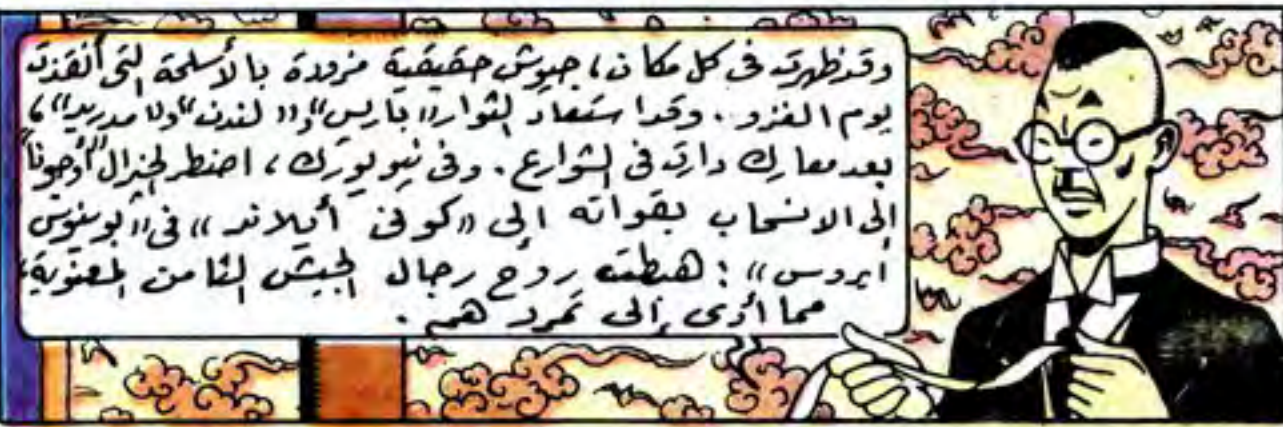 وقد ظهرت فى كل مكان ، جيوش حقيقية مزودة بالأسلحة التى أنقذت
يوم الغزو . وقد استعاد الثوار "باريس" و "لندن" و "مدريد" ،
بعد معارك دارت فى الشوارع . وفى نيويورك ، اضطر الجنرال
إلى الانسحاب بقواته إلى "كونى أيلاند" ، فى "بوينوس
ايروس" : هبطت روح رجال الجيش الثامن المعنوية ،
مما أدى إلى تمرد هم .